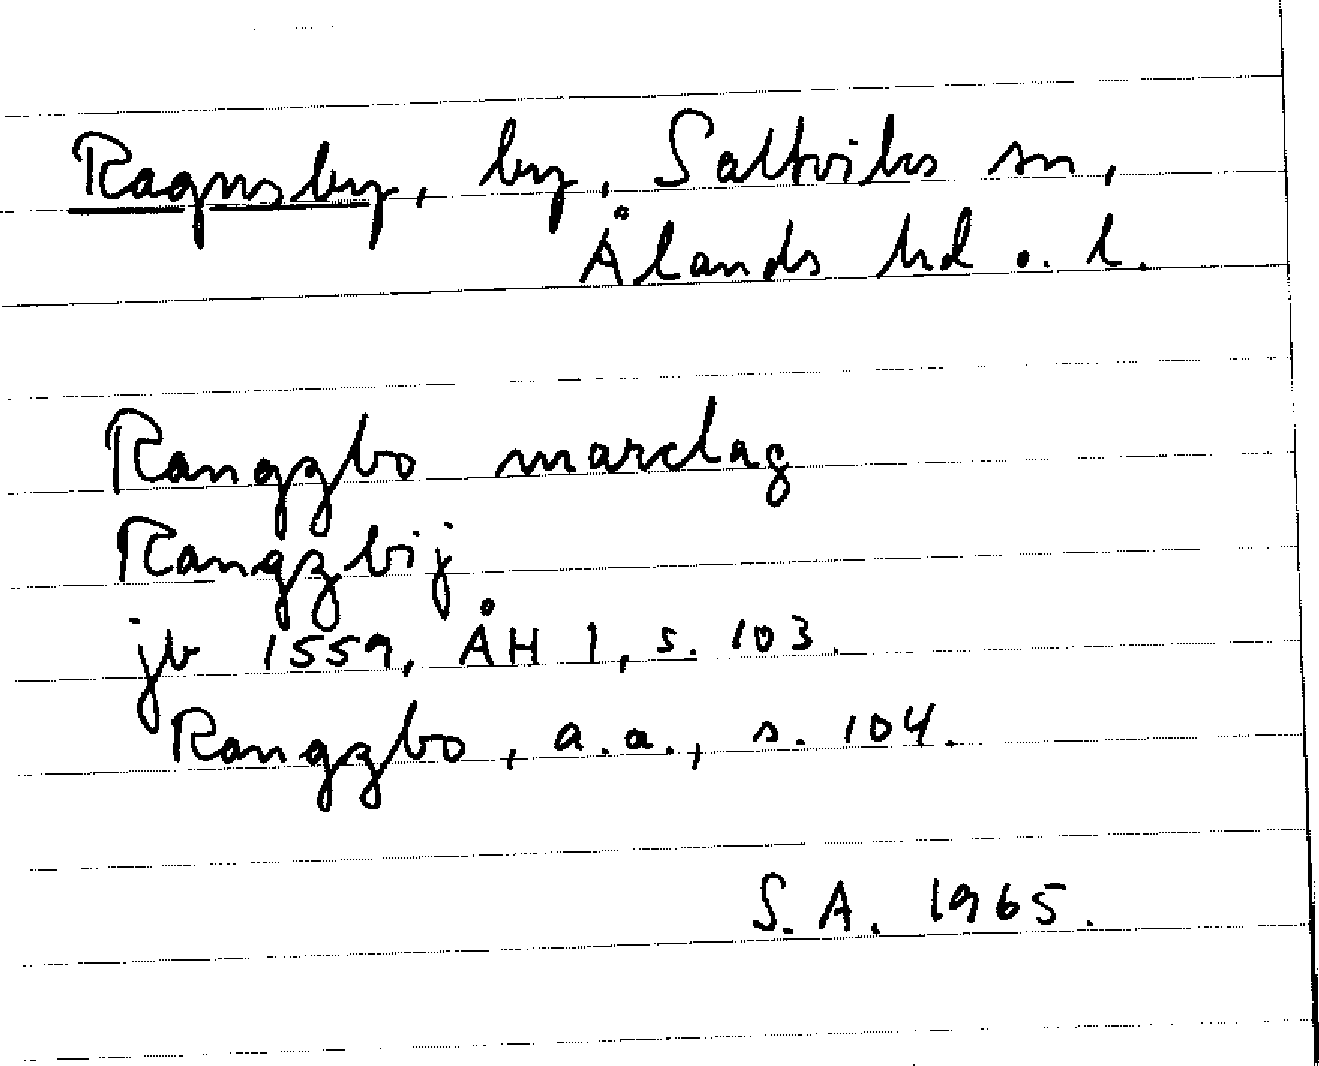 Ragnsby, by, Saltviks sn,
Ålands hd o. l.
Rangzbo marclag
Rangzbij
jb 1559, ÅH 1, s. 103.
Rangzbo, a.a., s. 104.
S.A. 1965.